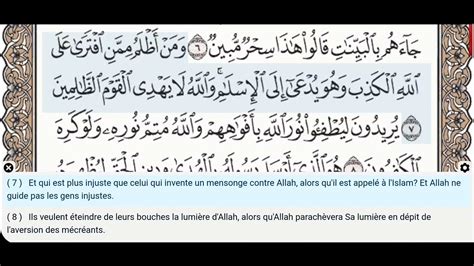 جَآءَهُم بِٱلْبَيِّنَٰتِ قَالُوا۟ هَٰذَا سِحْرٌ مُّبِينٌ ٦ وَمَنْ أَظْلَمُ مِمَّنِ ٱفْتَرَىٰ عَلَى
ٱللَّهِ ٱلْكَذِبَ وَهُوَ يُدْعَىٰٓ إِلَى ٱلْإِسْلَٰمِ ۚ وَٱللَّهُ لَا يَهْدِى ٱلْقَوْمَ ٱلظَّٰلِمِينَ
٧ يُرِيدُونَ لِيُطْفِـُٔوا۟ نُورَ ٱللَّهِ بِأَفْوَٰهِهِمْ وَٱللَّهُ مُتِمُّ نُورِهِۦ وَلَوْ كَرِهَ
ٱلْكَٰفِرُونَ ٨ هُوَ ٱلَّذِىٓ أَرْسَلَ رَسُولَهُۥ بِٱلْهُدَىٰ وَدِينِ ٱلْحَقِّ لِيُظْهِرَهُۥ
( 7 ) Et qui est plus injuste que celui qui invente un mensonge contre Allah, alors qu'il est appelé à l'Islam? Et Allah ne
guide pas les gens injustes.
( 8 ) Ils veulent éteindre de leurs bouches la lumière d'Allah, alors qu'Allah parachèvera Sa lumière en dépit de
l'aversion des mécréants.